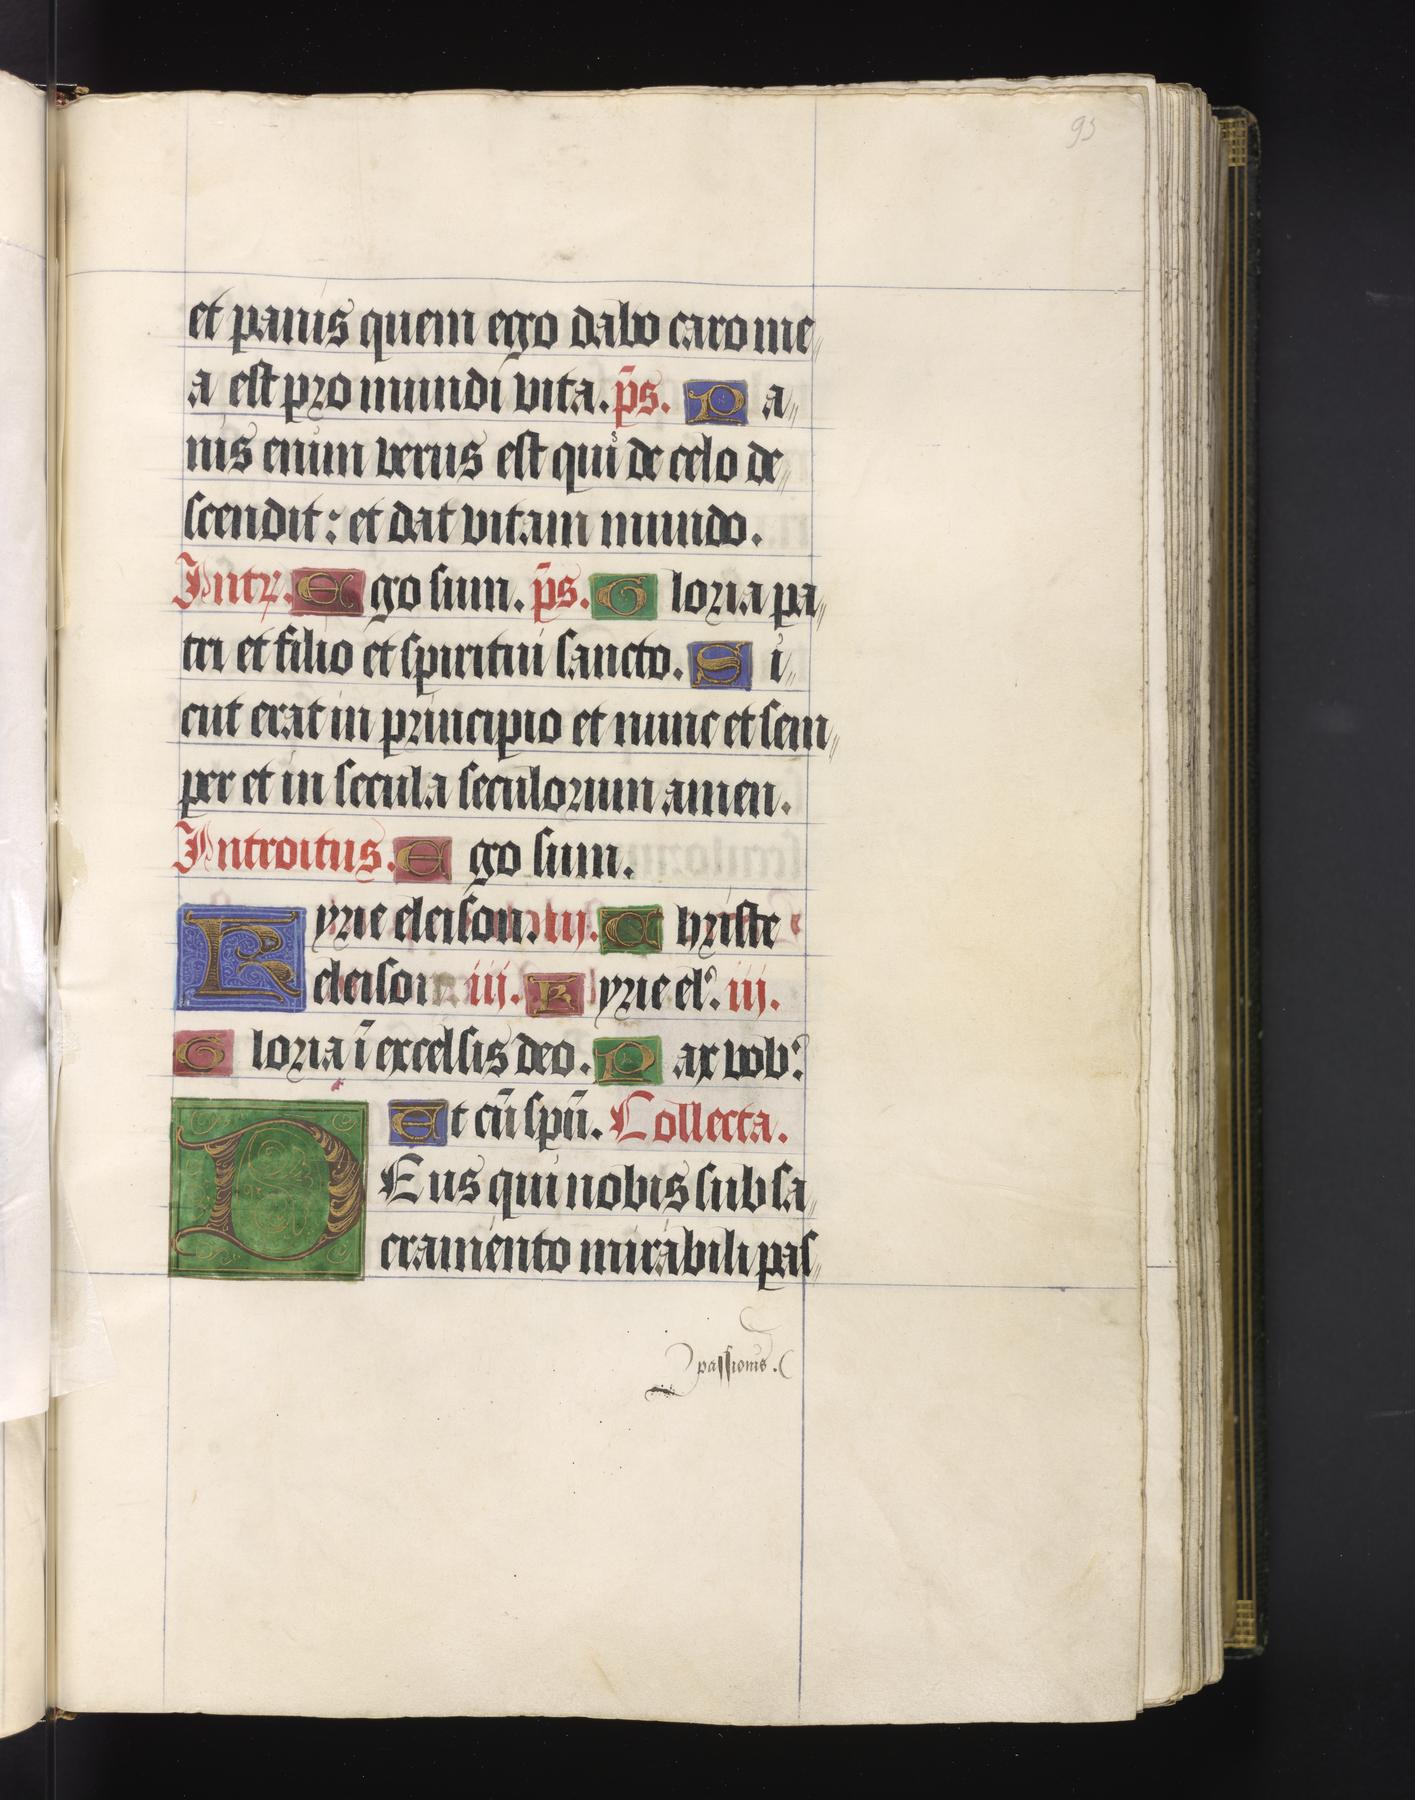 93
et panis quem ego dabo caro me„
a est pro mundi vita. p̄s. P a„
nis enim verus est qui de celo de„
scendit: et dat vitam mundo.
Intr. E go sum. p̄s. G loria pa„
tri et filio et spiritui sancto. S i„
cut erat in principio et nunc et sem„
per et in secula seculorum amen.
Introitus. E go sum.
K yrie eleison. iij. C hriste
eleison iij. K yrie el'. iij.
G loria ī excelsis deo. P ax vob'.
E t cū spū. Collecta.
D Eus qui nobis sub sa„
cramento mirabili pas„
passionis.